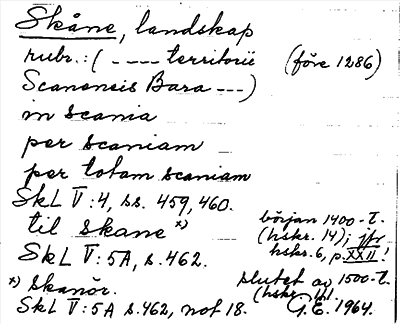 Skåne, landskap
rubr.: ( - - - - territorii (före 1286)
Scanensis Bara - - - )
in scania
per scaniam
per totam scaniam
SkL V:4, ss. 459, 460.
til skane *) början 1400-t.
(hskr. 14); jfr
SkL V:5A, s. 462. hskr. 6, p. XXII!
*) skanör. slutet av 1500-t.
(hskr.
SkL V:5A s. 462, not 18. G.E. 1964.